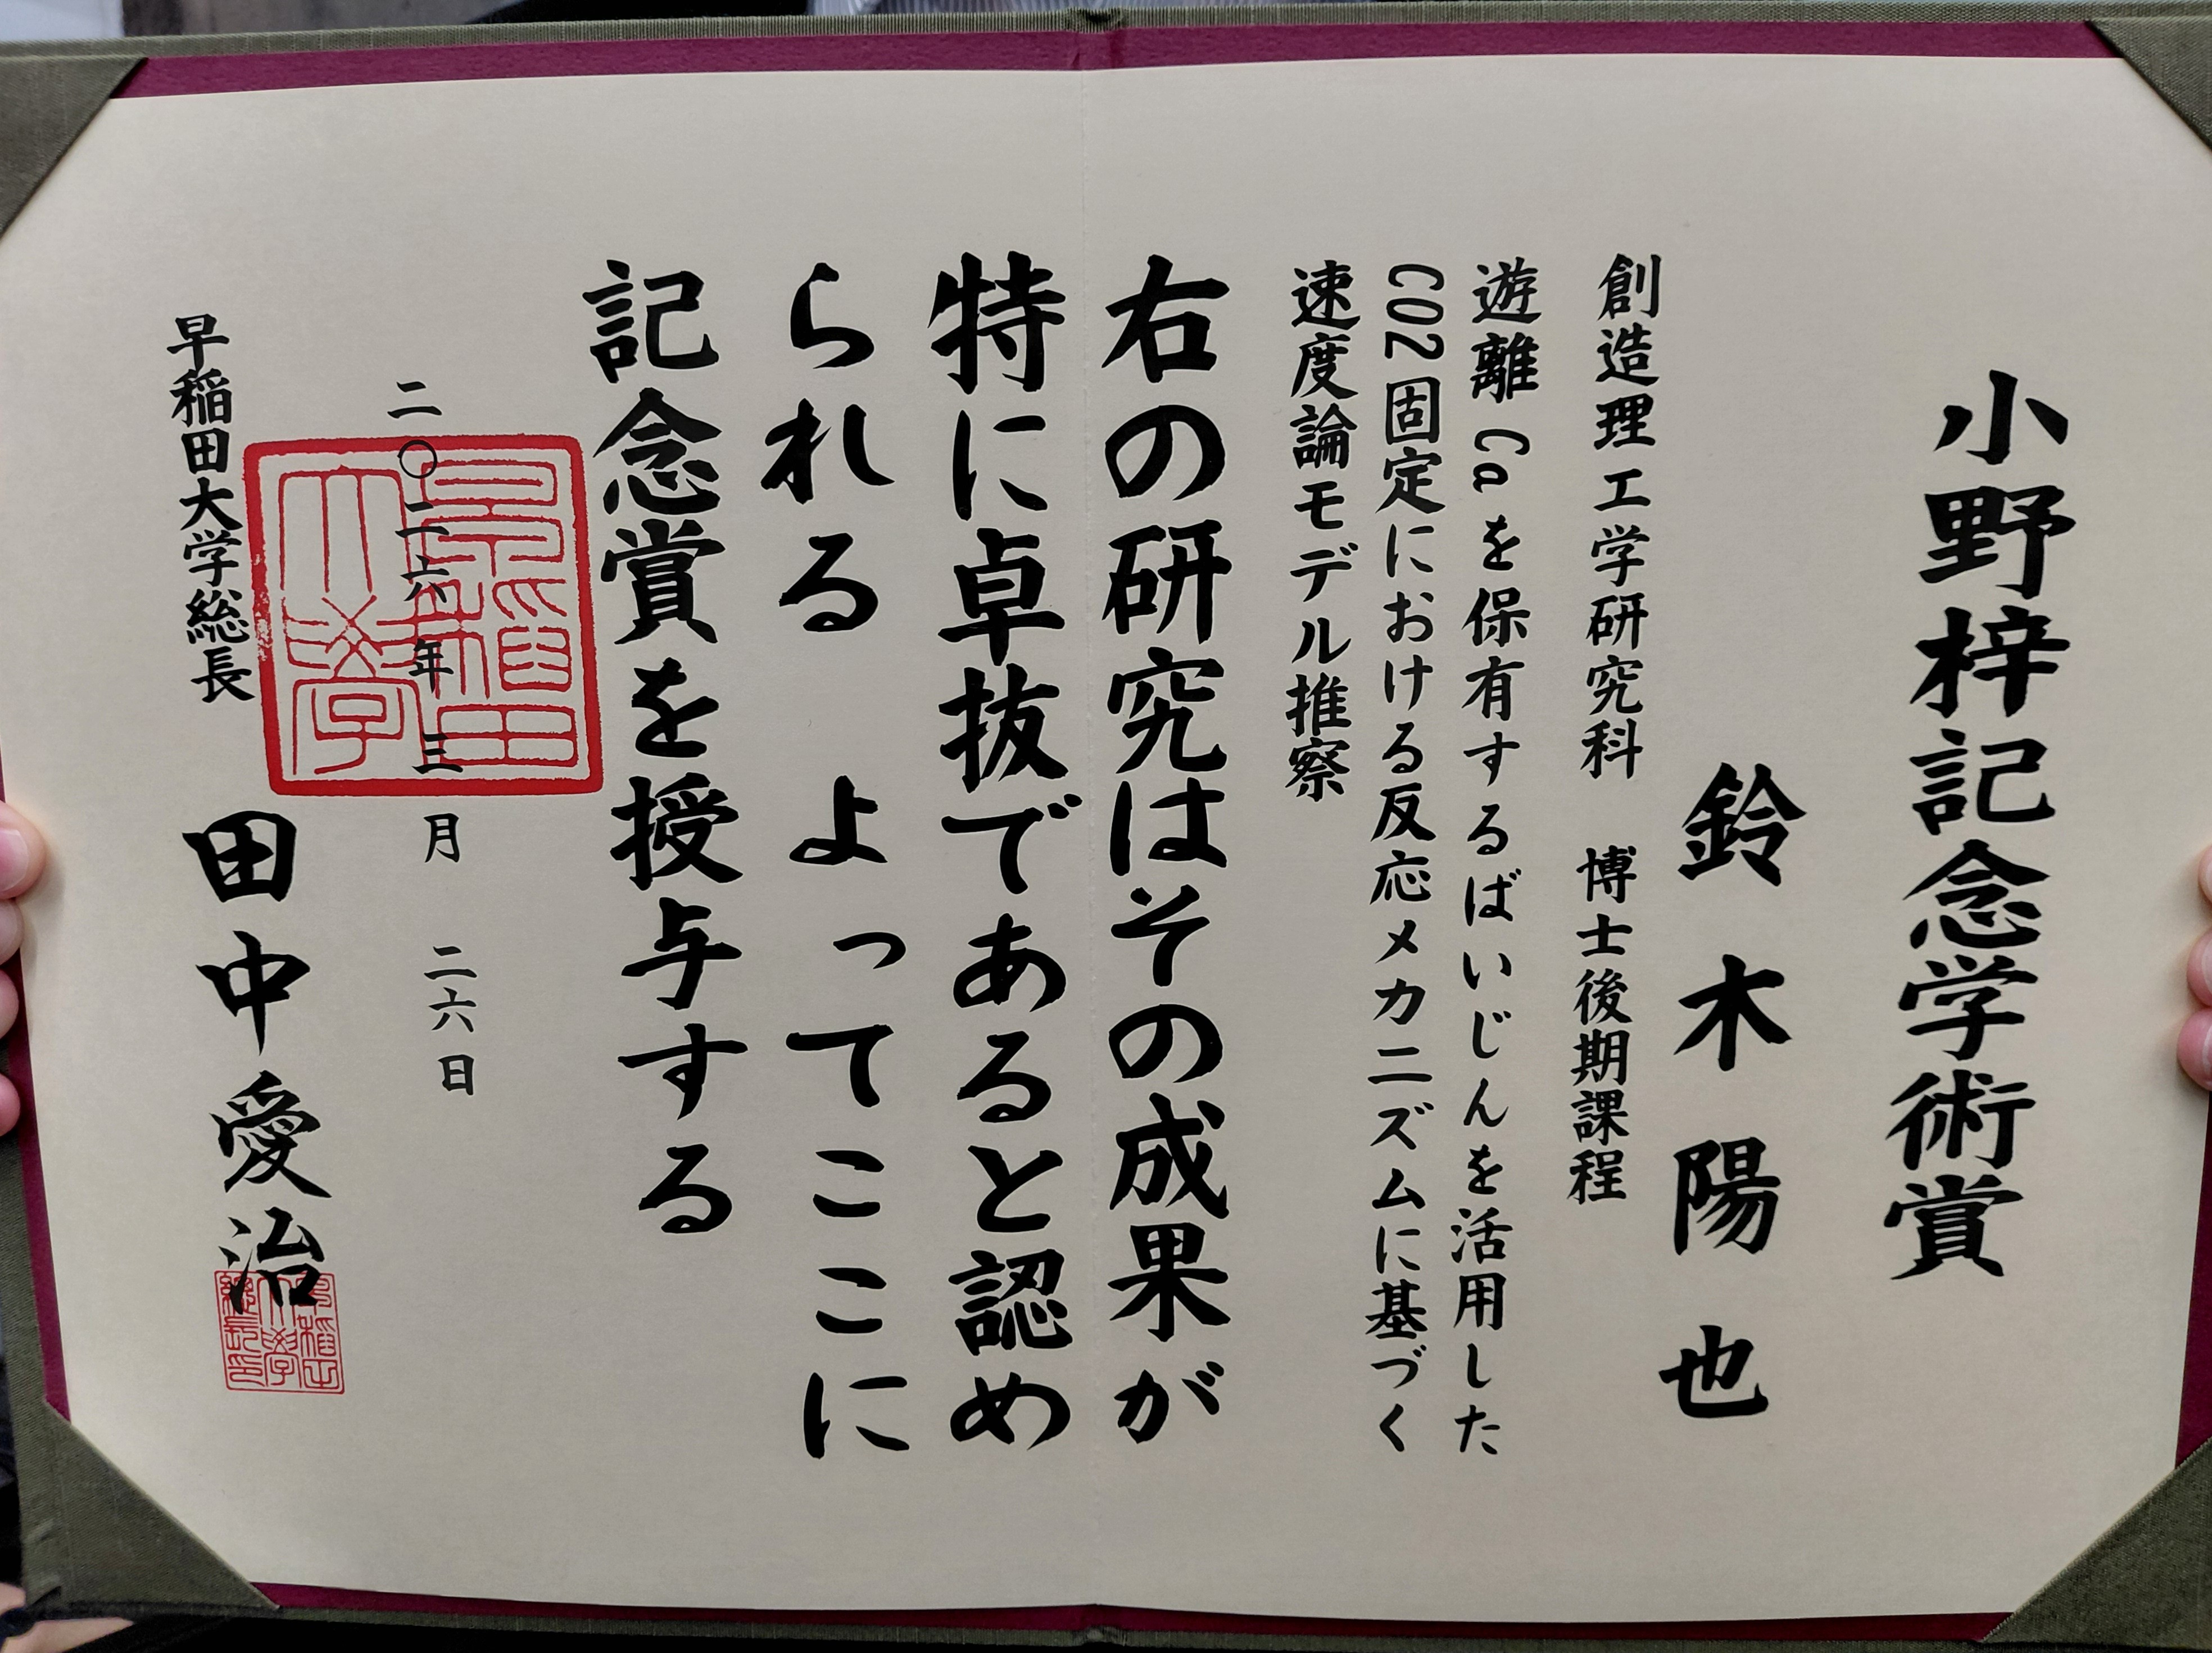 小野梓記念学術賞
鈴木陽也
創造理工学研究科 博士後期課程
遊離Caを保有するばいじんを活用した
CO2固定における反応メカニズムに基づく
速度論モデル推察
右の研究はその成果が
特に卓抜であると認め
られる よってここに
記念賞を授与する
二〇二六年三月二六日
早稲田大学総長
田中愛治
早稲田大学
早稲田大学総長印